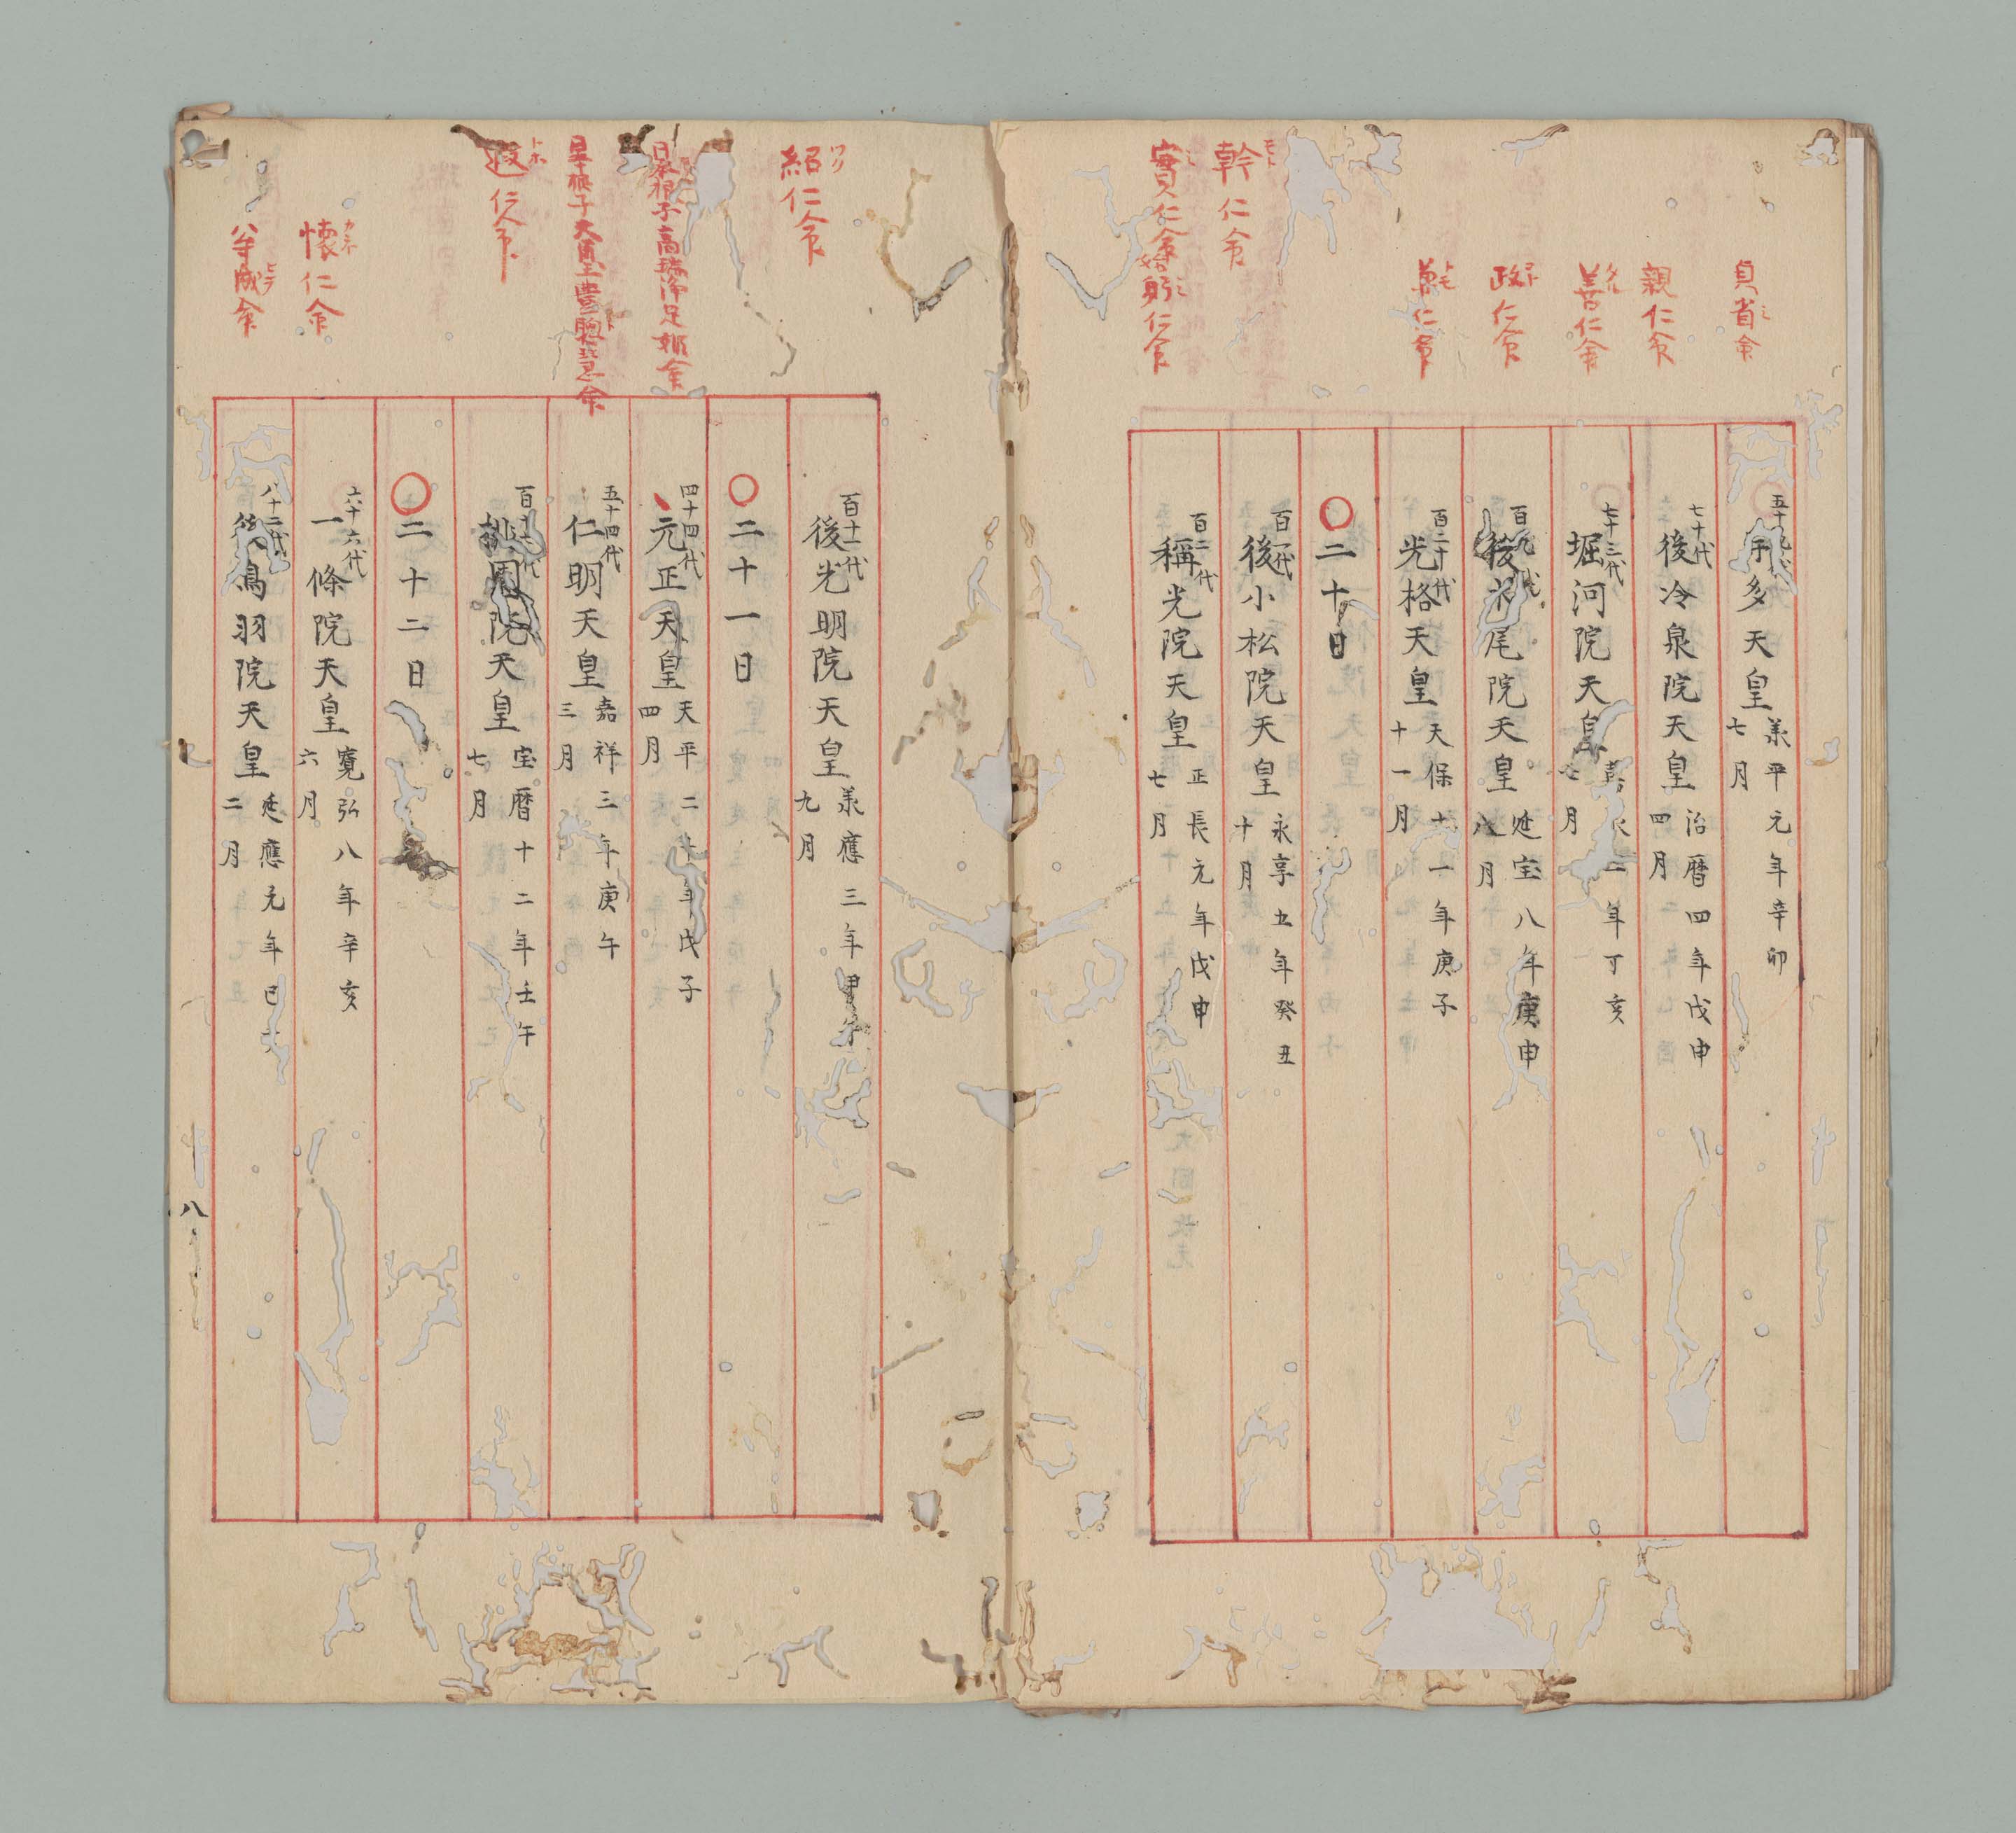 貞省命
ミ
五十九代
宇多天皇
承平元年辛卯
七月
親仁命
七十代
後冷泉院天皇
治暦四年戊申
四月
善仁命
タル
七十三代
堀河院天皇
二年丁亥
七月
政仁命
コト
百九代
後水尾院天皇
延宝八年庚申
八月
仁命
トモ
百二十代
光格天皇
天保十一年庚子
十一月
○二十日
幹仁命
モト
百一代
後小松院天皇
永享五年癸丑
十月
實仁命
始躬仁命
ミ
百二代
稱光院天皇
正長元年戊申
七月
紹仁命
ツク
百十一代
後光明院天皇
承應三年甲午
九月
○二十一日
日本根子高瑞浄足姫命
四十四代
元正天皇
天平二十年戊子
四月
日本根子天璽豊聰慧命
五十四代
仁明天皇
嘉祥三年庚午
三月
遐仁命
トホ
百十七代
桃園院天皇
宝暦十二年壬午
七月
○二十二日
懐仁命
カネ
六十六代
一條院天皇
寛弘八年辛亥
六月
成命
ヒラ
八十二代
後鳥羽院天皇
延應元年己
二月
八